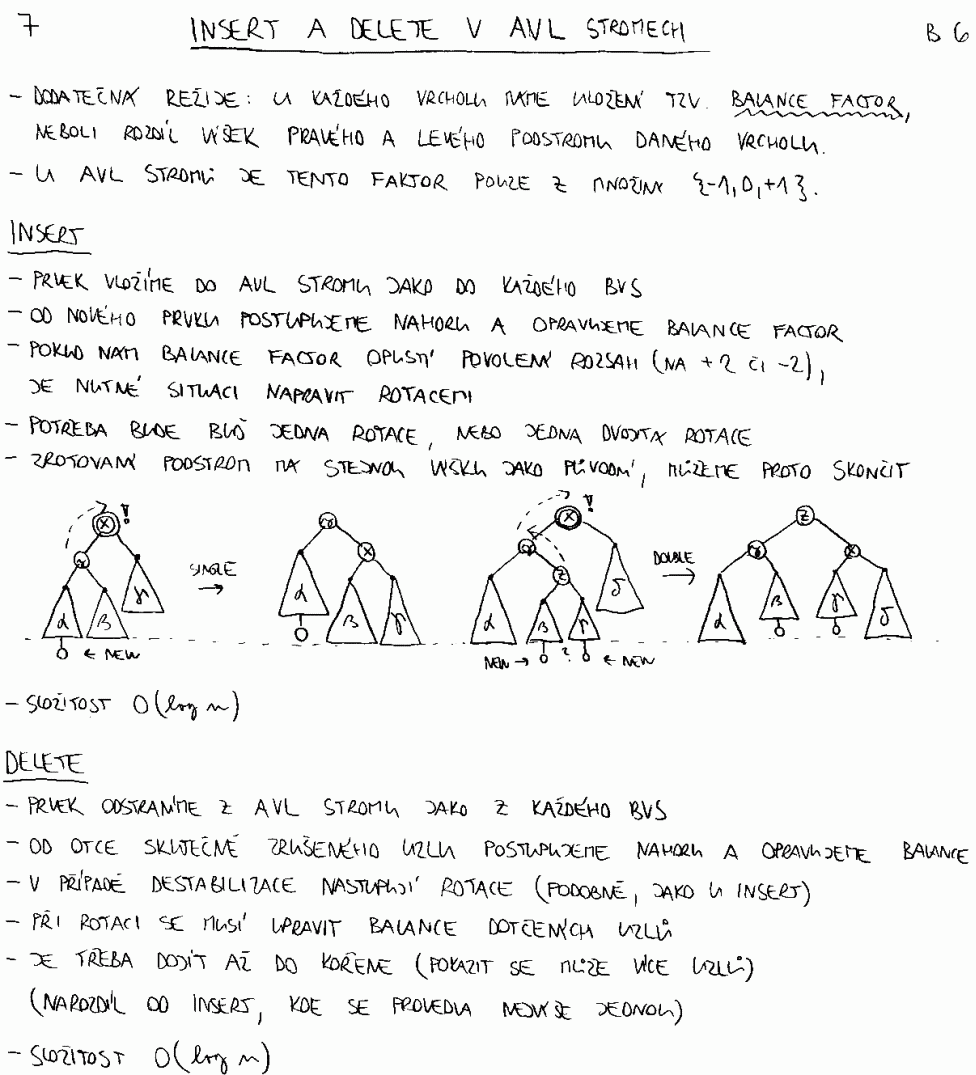 7 INSERT A DELETE V AVL STROMECH B 6
- DODATEČNÁ REŽIJE: U KAŽDÉHO VRCHOLU MÁME ULOŽENÝ TZV. BALANCE FACTOR,
NEBOLI ROZDÍL VÝŠEK PRAVÉHO A LEVÉHO PODSTROMU DANÉHO VRCHOLU.
- U AVL STROMŮ JE TENTO FAKTOR POUZE Z MNOŽINY {-1,0,+1}.
INSERT
- PRVEK VLOŽÍME DO AVL STROMU JAKO DO KAŽDÉHO BVS
- OD NOVÉHO PRVKU POSTUPUJEME NAHORU A OPRAVUJEME BALANCE FACTOR
- POKUD NÁM BALANCE FACTOR OPUSTÍ POVOLENÝ ROZSAH (NA +2 ČI -2),
JE NUTNÉ SITUACI NAPRAVIT ROTACEMI
- POTŘEBA BUDE BUĎ JEDNA ROTACE, NEBO JEDNA DVOJITÁ ROTACE
- ZROTOVANÝ PODSTROM MÁ STEJNOU VÝŠKU JAKO PŮVODNÍ, MŮŽEME PROTO SKONČIT
X ! Y α β γ ← NEW
SINGLE →
Y X α β γ
X ! Y Z α β γ δ NEW → ? ← NEW
DOUBLE →
Z Y X α β γ δ
- SLOŽITOST O(log n)
DELETE
- PRVEK ODSTRANÍME Z AVL STROMU JAKO Z KAŽDÉHO BVS
- OD OTCE SKUTEČNĚ ZRUŠENÉHO UZLU POSTUPUJEME NAHORU A OPRAVUJEME BALANCE
- V PŘÍPADĚ DESTABILIZACE NASTUPUJÍ ROTACE (PODOBNĚ, JAKO U INSERT)
- PŘI ROTACI SE MUSÍ UPRAVIT BALANCE DOTČENÝCH UZLŮ
- JE TŘEBA DOJÍT AŽ DO KOŘENE (POKAZIT SE MŮŽE VÍCE UZLŮ)
(NAROZDÍL OD INSERT, KDE SE PROVEDLA NEJVÝŠE JEDNOU)
- SLOŽITOST O(log n)